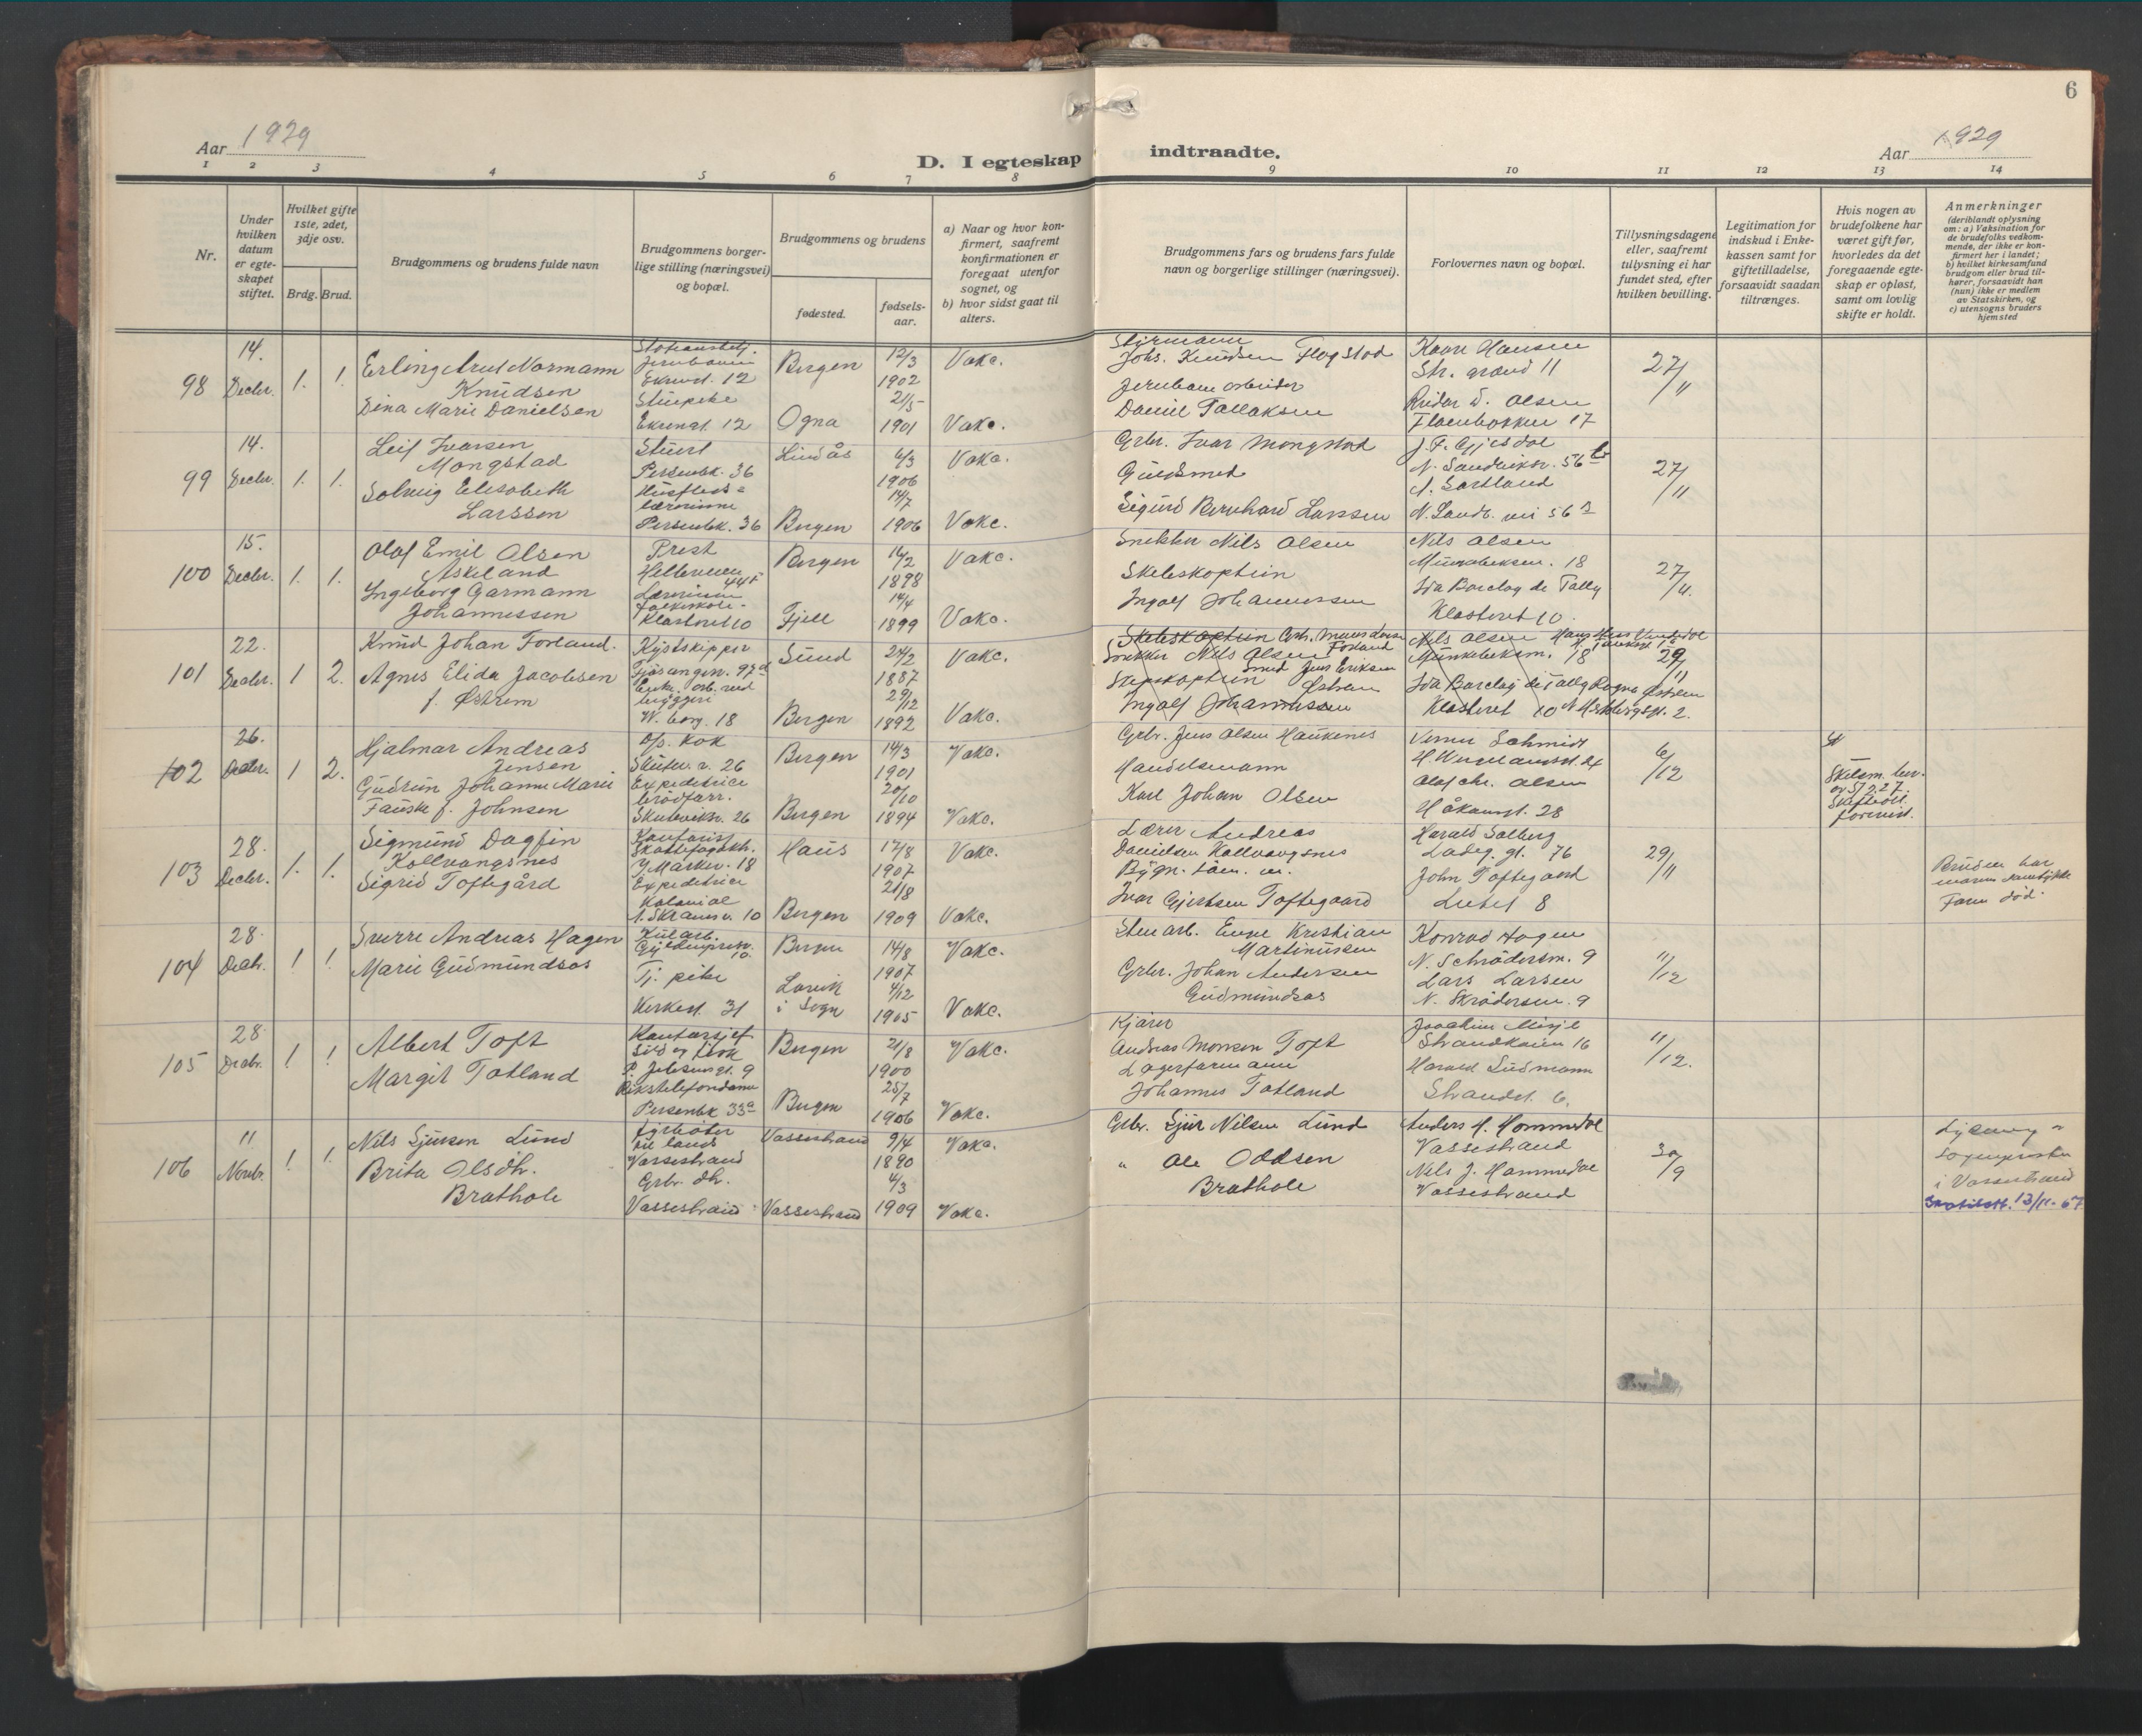 6
Aar 1929
D. I egteskap indtraadte.
Aar 1929
1 2 3 4 5 6 7 8 9 10 11 12 13 14
Nr.
Under
hvilken
datum
er egte-
skapet
stiftet.
Hvilket gifte
1ste, 2det,
3dje osv.
Brdg. Brud.
Brudgommens og brudens fulde navn
Brudgommens borger-
lige stilling (næringsvei)
og bopæl.
Brudgommens og brudens
fødested.
fødsels-
aar.
a) Naar og hvor kon-
firmert, saafremt
konfirmationen er
foregaat utenfor
sognet, og
b) hvor sidst gaat til
alters.
Brudgommens fars og brudens fars fulde
navn og borgerlige stillinger (næringsvei).
Forlovernes navn og bopæl.
Tillysningsdagene
eller, saafremt
tillysning ei har
fundet sted, efter
hvilken bevilling.
Legitimation for
indskud i Enke-
kassen samt for
giftetilladelse,
forsaavidt saadan
tiltrænges.
Hvis nogen av
brudefolkene har
været gift før,
hvorledes da det
foregaaende egte-
skap er opløst,
samt om lovlig
skifte er holdt.
Anmerkninger
(deriblandt oplysning
om: a) Vaksination for
de brudefolks vedkom-
mende, der ikke er kon-
firmert her i landet;
b) hvilket kirkesamfund
brudgom eller brud til-
hører, forsaavidt han
(hun) ikke er medlem
av Statskirken, og
c) utensogns bruders
hjemsted
98
14.
Decbr.
1. 1.
Erling Arnt Normann
Knudsen
Dina Marie Danielsen
Ekrengt. 12
Bergen
Ogna
12/3
1902
21/5
1901
Vakc.
Vakc.
Styrmann
Johs. Knudsen Flogstad
Jernbanearbeider
Daniel Tallaksen
Kaare Hansen
Str. grænd 11
Reidar W. Olsen
Fløenbakken 17
27/11
99
14.
Decbr.
1. 1.
Leif Ivarsen
Mongstad
Solveig Elisabeth
Larssen
Stuert
Persenbk. 36
Husflids=
lærerinne
Persenbk. 36
Lindås
Bergen
6/3
1906
14/7
1906
Vakc.
Vakc.
Grbr. Ivar Mongstad
Gullsmed
Sigurd Bernhard Larssen
27/11
100
15.
Decbr.
1. 1.
Olaf Emil Olsen
Askeland
Ingeborg Garmann
Johannessen
Prest
Lærerinne
folkeskole-
Klosteret 10
Bergen
Fjell
1898
14/4
1899
Vakc.
Vakc.
Snekker Nils Olsen
Skibskaptein
Ingolf Johannessen
Nils Olsen
Munkebeksm. 18
Ida Barclay de Tolly
Klosteret 10.
27/11.
101
22.
Decbr.
1 2.
Knud Johan Forland.
Agnes Elida Jacobsen
f. Østrem
Kystskipper
W. borg. 18
Sund
Bergen
24/2
1887
29/12
1892
Vakc.
Vakc.
Forland
Snekker Nils Olsen
Smed Jens Eriksen
Østrem
Ingolf Johannessen
Nils Olsen
Munkebeksm. 18
Ida Barclay de Tolly Ragna Østrem
Klosteret 10
29/11
102
26.
Decbr.
1 2.
Hjalmar Andreas
Jensen
Gudrun Johanne Marie
Fauske f. Johnsen
Kok
Skutev. v. 26
Expeditrice
brødforr.
Skuteviksv. 26
Bergen
Bergen
14/3
1901
20/10
1894
Vakc.
Vakc.
Grbr. Jens Olsen Haukenes
Handelsmann
Karl Johan Olsen
Verner Schmidt
Olaf Chr. Olsen
Håkonsgt. 28
6/12
103
28.
Decbr.
1. 1.
Sigmund Dagfin
Kollvangsnes
Sigrid Toftegård
Kontorist
Y. Markev. 18
Expeditrice
Kolonial
Haus
Bergen
17/8
1907
21/8
1909
Vakc.
Vakc.
Lærer Andreas
Danielsen Kollvangsnes
Ivar Gjertsen Toftegaard
Harald Solberg
Ladeg. gt. 76
John Toftegaard
29/11
Bruden har
morens samtykke
Faren død.
104
28.
Decbr.
1 1.
Sverre Andreas Hagen
Marie Gudmundsøs
Tj. pike
Kirkest. 31
Bergen
Lavik
i Sogn
14/8
1907
4/12
1905
Vakc.
Vakc.
Martinussen
Grbr. Johan Andersen
Gudmundsøs
Konrad Hagen
N. Schrødersm. 9
Lars Larsen
N. Skrødersm. 9
11/12
105
28.
Decbr.
1 1
Albert Toft
Margit Totland
Kontorsjef
Persenbk 33a
Bergen
Bergen
21/8
1900
25/7
1906
Vakc.
Vakc.
Andreas Monsen Toft
Lagerformann
Johannes Totland
Joachim Misje
Strandkaien 16
Harald Sudmann
Strandst. 6.
11/12.
106
11
Novbr.
1 1.
Nils Sjursen Lund
Brita Olsdtr.
Brathole
Fyrbøter
til lands
Vassestrand
Grbr. dtr.
Vassestrand
Vassestrand
Vassestrand
9/4
1890
4/3
1909
Vakc.
Vakc.
Grbr. Sjur Nilsen Lund
" Ole Oddsen
Brathole
Anders H. Hommedal
Vassestrand
Nils J. Hommedal
Vassestrand
30/9
Lysning v.
sognepresten
i Vassestrand